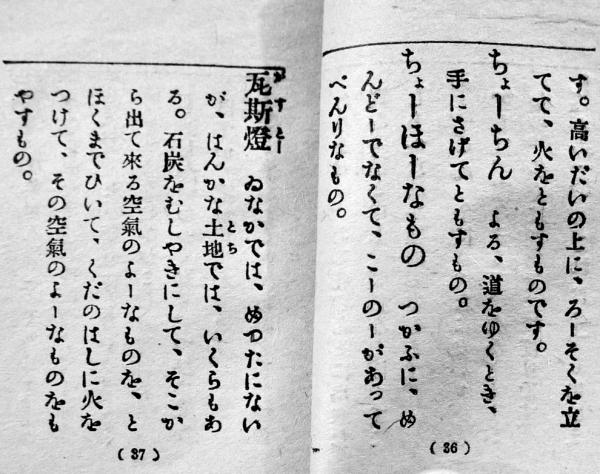 す。高いだいの上に、ろーそくを立
てて、火をともすものです。
ちょーちん　よる、道をゆくとき、
手にさげてともすもの。
ちょーほーなもの　つかふに、め
んどーでなくて、こーのーがあって
べんりなもの。
(36)
瓦斯燈　ゐなかでは、めつたにない
がすとー
が、はんかな土地では、いくらもあ
とち
る。石炭をむしやきにして、そこか
ら出て來る空氣のよーなものを、と
ほくまでひいて、くだのはしに火を
つけて、その空氣のよーなものをも
やすもの。
(37)